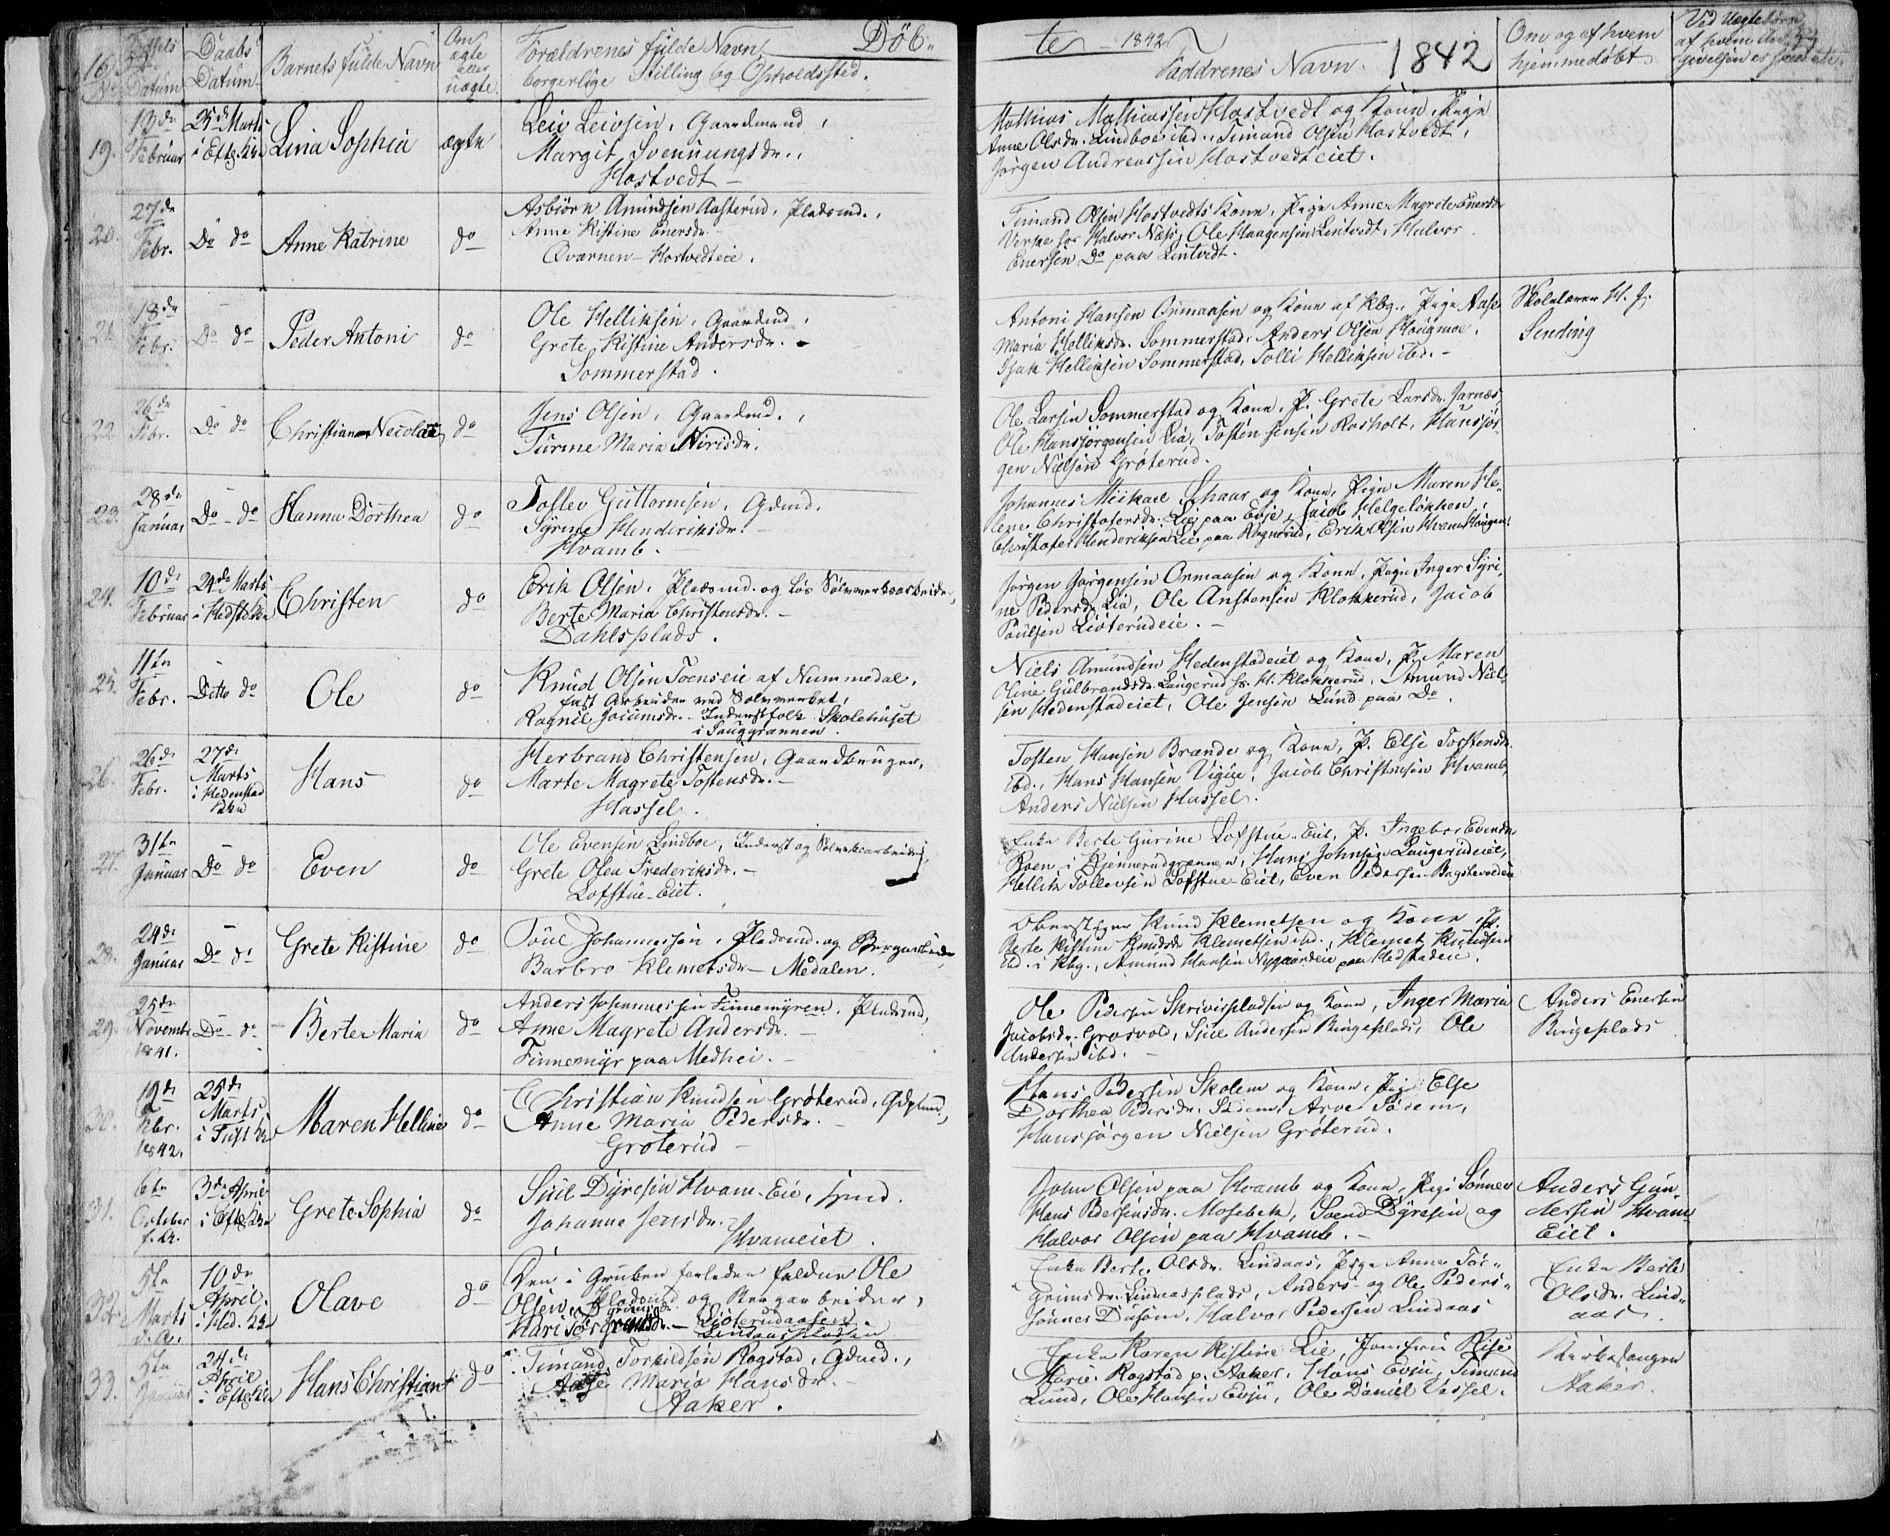 Døb-
te 1842
1842
Fødsels Datum
Daabs Datum
Barnets fulde Navn
Om ægte eller uægte
Forældrenes fulde Navn
borgerlige Stilling og Opholdssted.
Faddrenes Navn.
Om, og af hvem
hjemmedøbt
Ved Uægtebørn
af hvem
19.
13de Februar
25de Marts
Lina Sophia
ægte
Leiv Leivsen, Gaardmand,
Margit Svennungsdr.,
Hostvedt
Mathias Mathiassen Hostvedt og Kone, Pige
Anne Olsdr. Lindboe ibd., Simand Olsen Hostvedt,
Jørgen Andreassen Hostvedteiet.
20.
27de Febr.
Do do
Anne Katrine
do
Asbiørn Amundsen Aasterud, Pladsmd.,
Anne Kistine Enersdr.
Qværnen Hostvedteie.
Simand Olsen Hostvedts Kone, Pige Anne Magrete Enersdr
Halvor Næss, Ole Haagensen Lintvedt, Halvor
Enersen Do paa Lintvedt.
21.
18de Febr.
Do do
Peder Antoni
do
Ole Helliksen, Gaardmd,
Grete Kistine Andersdr.
Sommerstad.
Antoni Hansen Ormaasen og Kone af Kbg., Pige Aase
Maria Helliksdr. Sommerstad, Anders Olsen Hougmoe,
Isak Helliksen Sommerstad, Tolli Helliksen ibd.
Skolelærer H. J.
Sending
22.
26de Febr.
Do do
Christian Necolai
do
Jens Olsen, Gaardmd.,
Turine Maria Nirisdr.
Ole Larsen Sommerstad og Kone, P. Grete Larsdr. Jarnæs,
Ole Hansjørgensen Lia, Tosten Jensen Rosholt, Hansjør-
gen Nielsen Grøterud.
23.
28de Januar
Do do
Hanna Dorthea
do
Tollev Guttormsen, Gdmd.
Syrine Henderiksdr.
Hvamb.
Johannes Mickael Schaar og Kone, Pige Maren He-
lene Christofersdr. Lie paa Evje, Jacob Helgeløkken,
Christofer Henderiksen Lie paa Rognerud, Erik Olsen Hvams Haugen.
24.
10de Februar
24de Marts i Hedst. K.
Christen
do
Erik Olsen, Pladsmd. og løs Sølvverksarbeider,
Berte Maria Christensdr.
Dahlsplads.
Jørgen Jørgensen Ormaasen og Kone, Pige Inger Syri-
ne Pedersdr. Lia, Ole Anstensen Klokkerud, Jacob
Poulsen Liøterudeie.
25.
11te Febr.
Ditto do
Ole
do
Knud Olsen Toenseie af Nummedal,
fast Arbeider ved Sølvverket,
Ragnil Joramsdr. Inderstfolk Skolehuset
i Sauggrænnen.
Niels Amundsen Hedenstadeiet og Kone, P. Maren
Oline Gulbrandsdr. Laugerud, Klokkerud, Amund Niel-
sen Hedenstadeiet, Ole Jensen Lund paa Do.
26.
26de Febr.
27de Marts i Hedenstad Kke
Hans
do
Herbrand Christensen, Gaardbruger,
Marte Magrete Tostensdr.
Hassel.
Tosten Hansen Brænde og Kone, P. Else Tostensdr.
ibd., Hans Hansen Vigue, Jacob Christensen Hvamb,
Anders Nielsen Hassel.
27.
31te Januar
Do do
Even
do
Ole Evensen Lindboe, Inderst og Sølvverksarbeider,
Grete Olea Frederiksdr.
Lofstue-Eiet.
Enke Berte Gurine Lofstue-Eiet, P. Ingebor Evensdr
Roen i Bjønnerudgrænnen, Hans Johnsen Laugerudeiet,
Hellik Tollevsen Lofstue-Eiet, Even Pedersen
28.
24de Januar
Do do
Grete Kistine
do
Poul Johannessen, Pladsmd. og Bergarbeider,
Barbro Klemetsdr. Medalen.
Oberstiger Knud Klemetsen og Kone, P.
Berte Kistine Knudsdr Klemetsen ibd., Klemet Knudsen
ibd. i Kbg., Amund Hansen Nygaardeie paa Hedstadeie.
29.
25de November 1841.
Do do
Berte Maria
do
Anders Johannessen Finnemyren, Pladsmd,
Anne Magrete Andersdr.
Finnemyr paa Medhei.
Ole Pedersen Skriverspladsen og Kone, Inger Maria
Jacobsdr. Grosvold, Siul Andersen Ringeplads, Ole
Andersen ibd.
Anders Enersen
Ringeplads
30.
19de Febr. 1842.
25de Marts i Tuft K.
Maren Helline
do
Christian Knudsen Grøterud,
Anne Maria Pedersdr.
Grøterud
Hans Pedersen Skolem og Kone, Pige Else
Dorthea Pedersdr. Sødem, Arve Sødem,
Hansjørgen Nielsen Grøterud.
31.
6te October f. A.
3de April i Efte. K.
Grete Sophia
do
Siul Dyresen Hvam-Eie,
Johanne Jensdr.
Hvameiet.
John Olsen paa Hvamb og Kone, Pige Sønnev
Hans Pedersensdr. Mosebek, Svend Dyresen og
Halvor Olsen paa Hvamb.
Anders Gun-
dersen Hvam-
Eiet.
32.
5te Marts d. A.
10de April i Hed. K.
Olave
do
Den i Gruben forleden faldne Ole
Olsen, Pladsmd og Bergarbeider,
Kari Torgrimsdr. Liøterudaasen
Lindaaspladsen
Enke Berte Olsdr. Lindaas, Pige Anne Tor-
grimsdr. Lindaasplads, Anders og Ole Peders-
sønner Dusøm, Halvor Pedersen Lindaas
Enke Berte
Olsdr. Lind-
aas.
33.
5te Januar
24de April i Efte K.
Hans Christian
do
Simand Torkildsen Rogstad, Gdmd.,
Aase Maria Hansdr.
Aaker.
Enke Karen Kistine Lie, Jomfru Rise
Marie Rogstad p. Aaker, Hans Evju, Simand
Lund, Ole Hansen Evju, Ole Daniel Vessel.
Kirkesanger
Aaker.